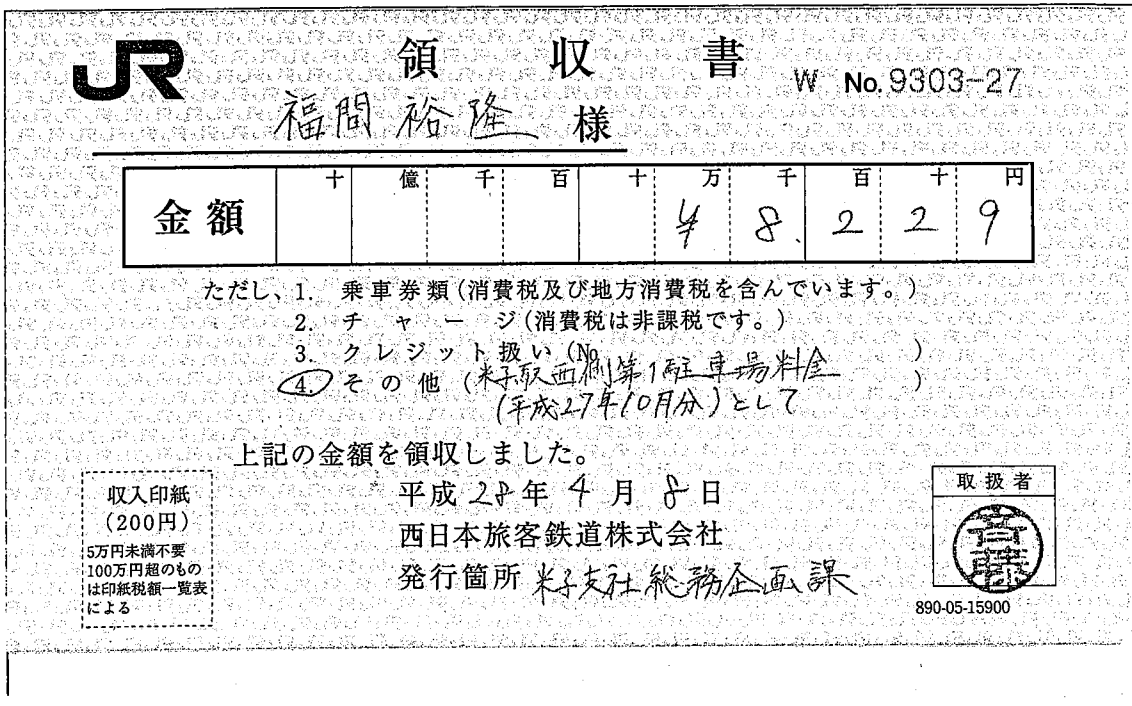 JR
領収書
W No. 9303-27
福間裕隆 様
金額 十 億 千 百 十 万 千 百 十 円
¥8,229
ただし、1. 乗車券類(消費税及び地方消費税を含んでいます。)
2. チャージ(消費税は非課税です。)
3. クレジット扱い(No. )
4. その他(米子駅西側第1駐車場料金 )
(平成27年10月分)として
上記の金額を領収しました。
平成28年4月8日
西日本旅客鉄道株式会社
発行箇所 米子支社総務企画課
収入印紙
(200円)
5万円未満不要
100万円超のもの
は印紙税額一覧表
による
取扱者
斉藤
890-05-15900